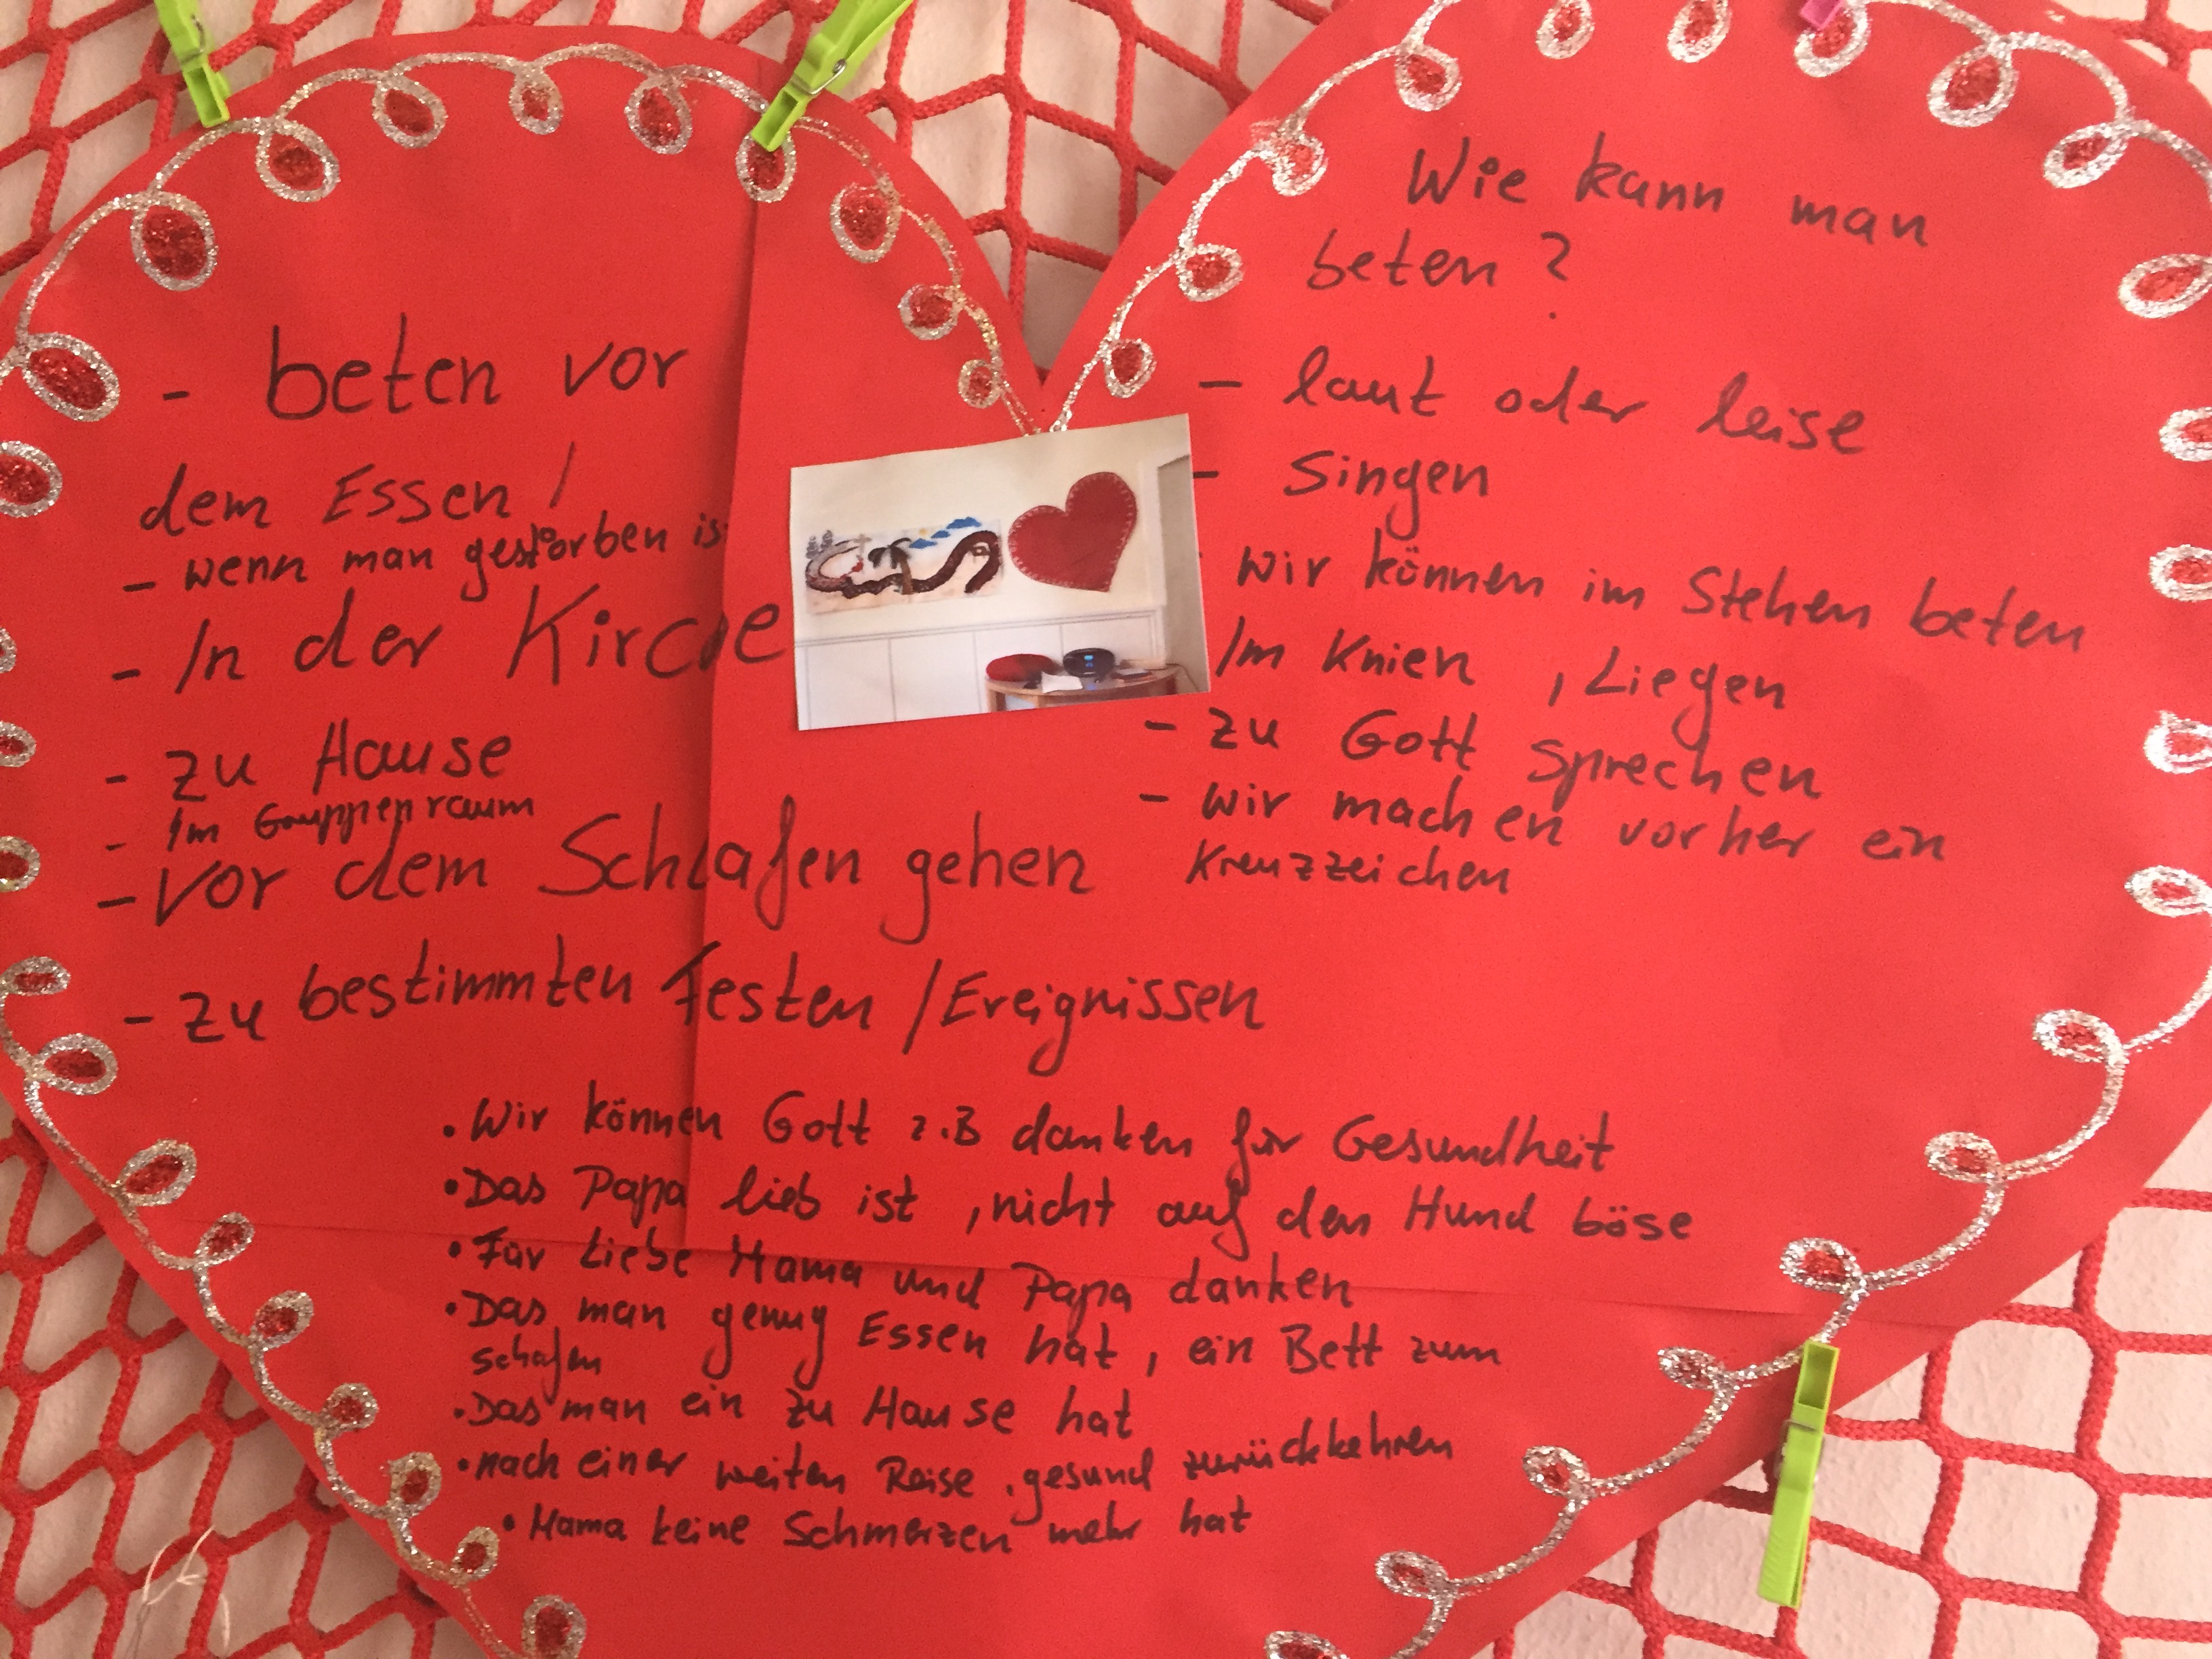 - beten vor
dem Essen /
- wenn man gestorben is
- In der Kirche
- zu Hause
- Im Gruppenraum
- Vor dem Schlafen gehen
- Zu bestimmten Festen / Ereignissen
Wie kann man
beten ?
- laut oder leise
- Singen
wir können im Stehen beten
Im Knien , Liegen
- zu Gott sprechen
- wir machen vorher ein
Kreuzzeichen
• Wir können Gott z.B danken für Gesundheit
• Das Papa lieb ist , nicht auf den Hund böse
• Für Liebe Mama und Papa danken
• Das man genug Essen hat , ein Bett zum
schafen
• Das man ein zu Hause hat
• nach einer weiten Reise , gesund zurückkehren
• Mama keine Schmerzen mehr hat